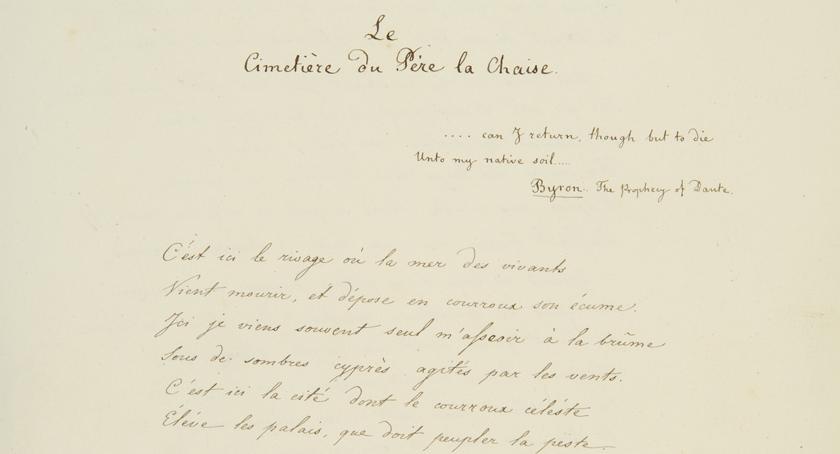 Le
Cimetière du Père la Chaise.
.... can I return, though but to die
Unto my native soil....
Byron. The Prophecy of Dante.
C'est ici le rivage où la mer des vivants
Vient mourir, et dépose en courroux son écume.
Ici je viens souvent seul m'asseoir à la brûme
Sous de sombres cyprès agités par les vents.
C'est ici la cité dont le courroux céléste
Élève les palais, que doit peupler la peste.